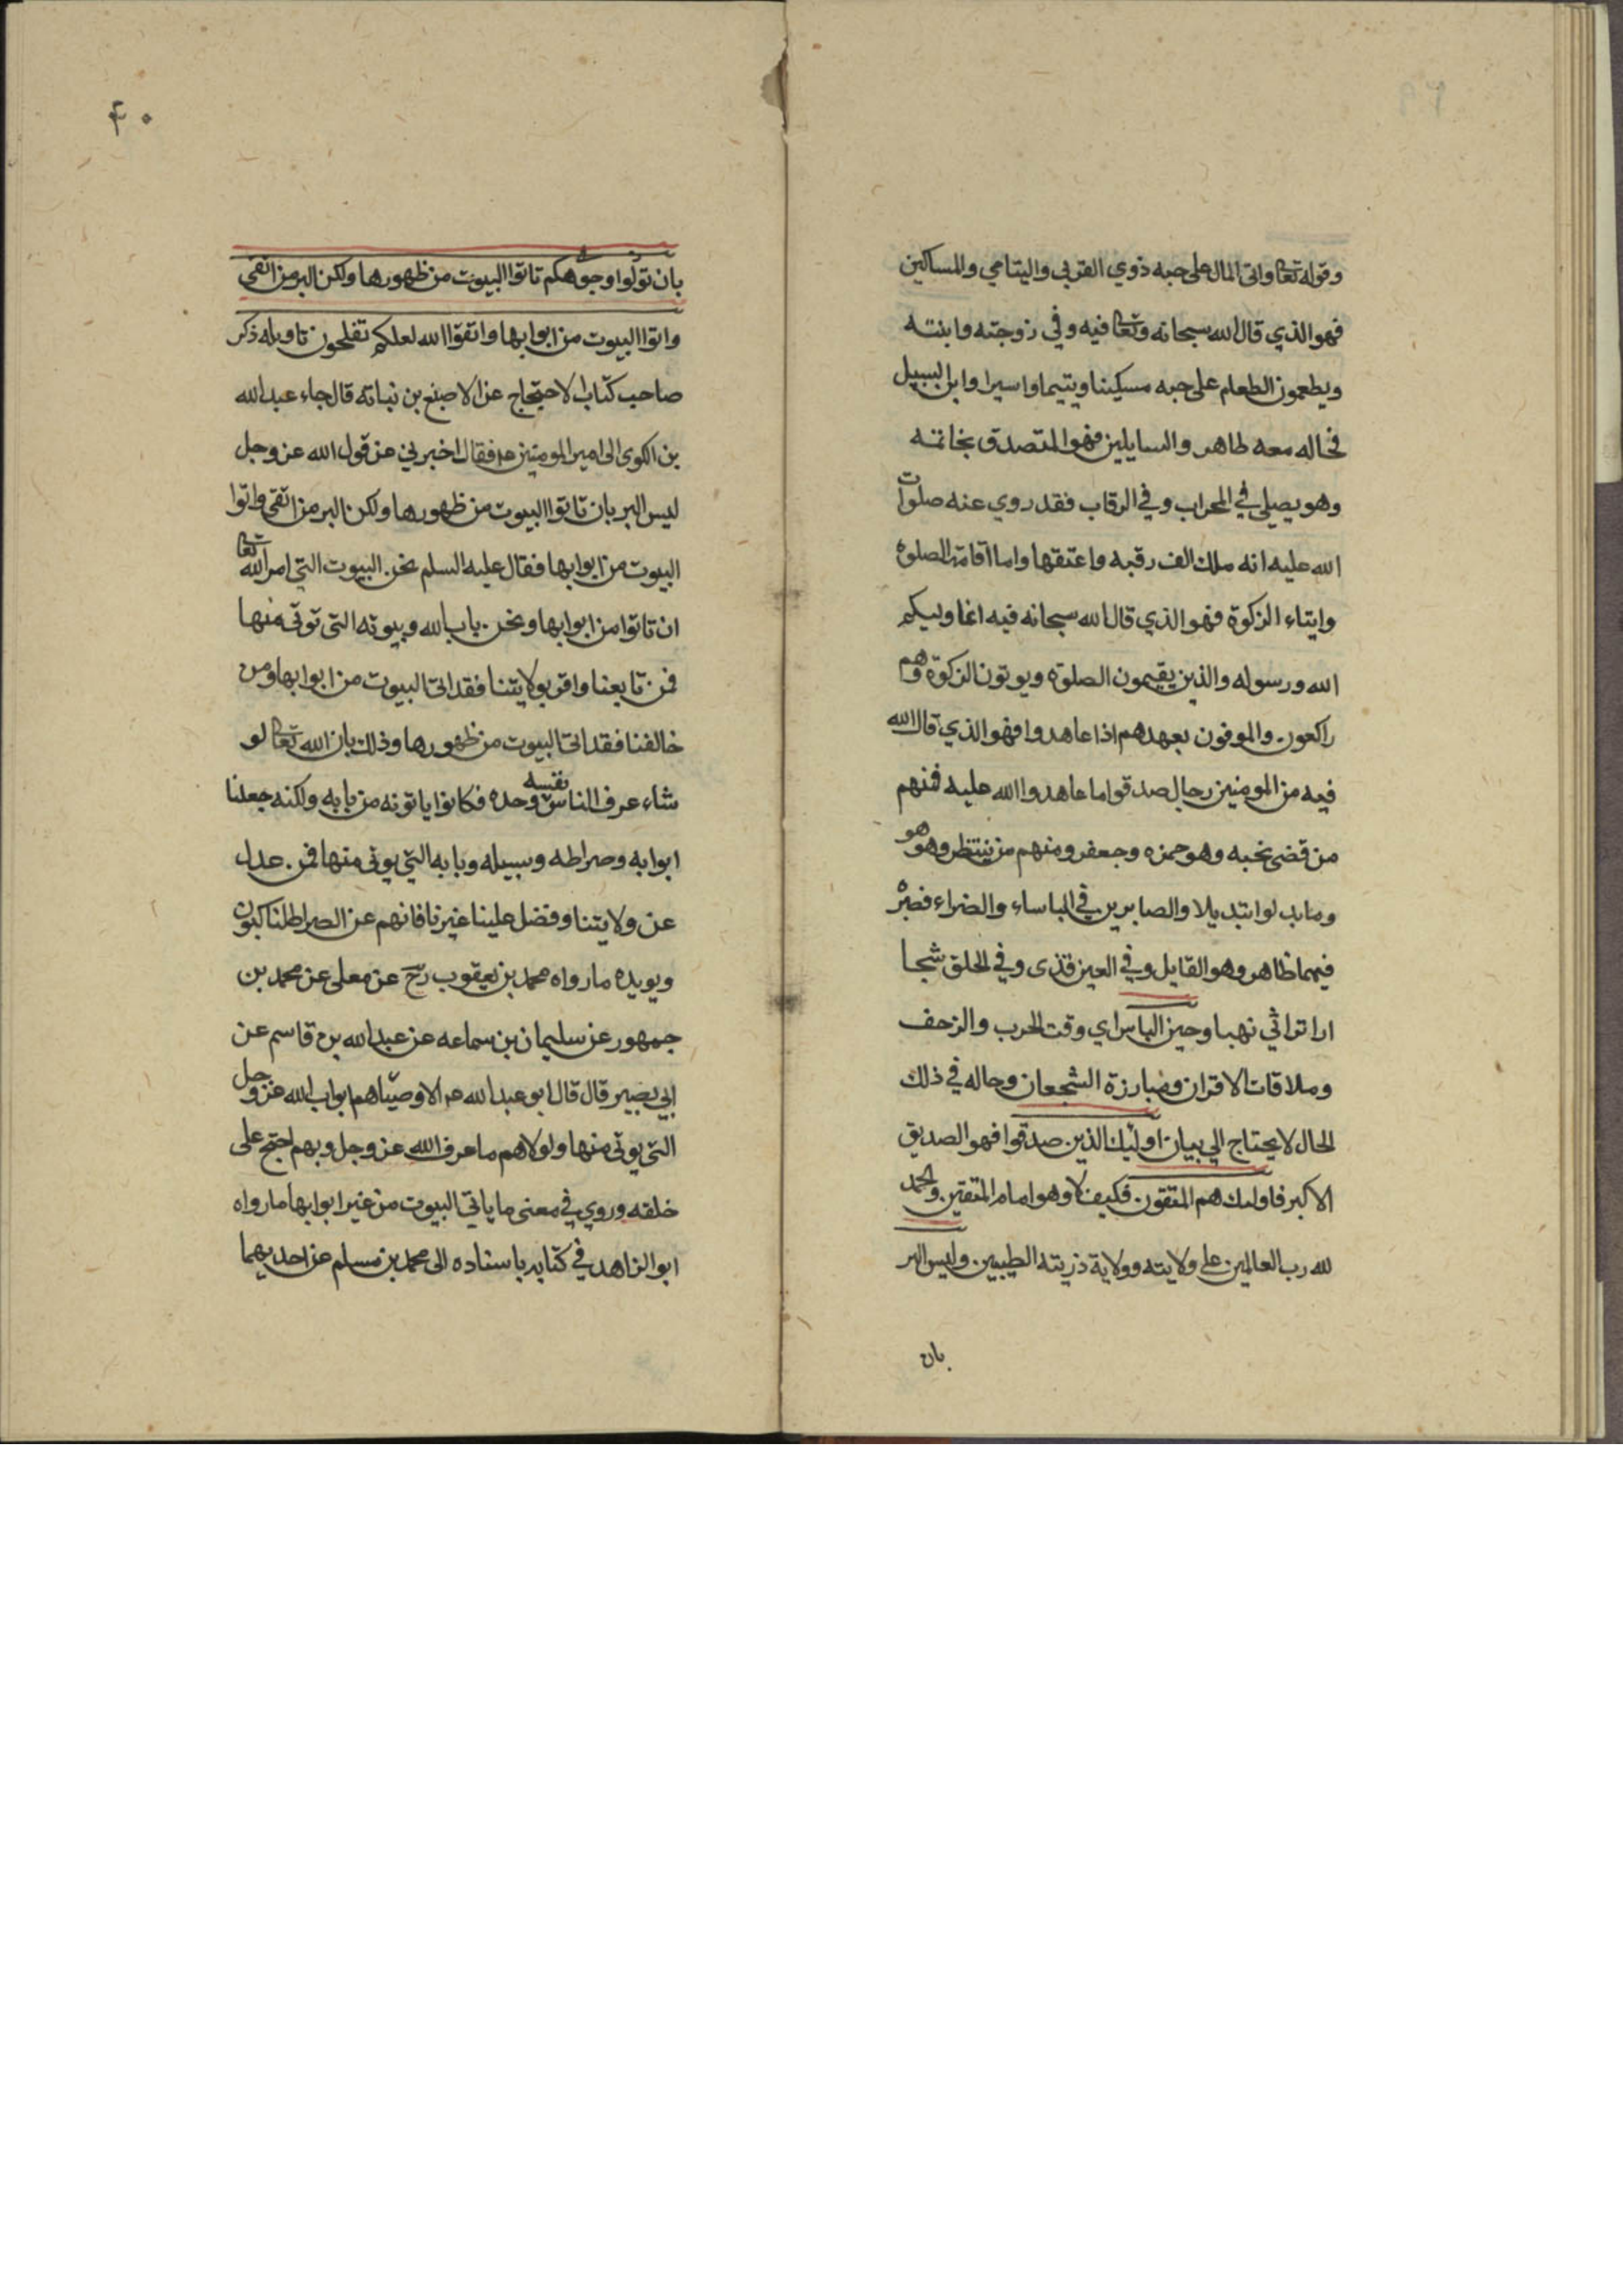 ٣٩
وقوله تعالى واتى المال على حبه ذوي القربى واليتامي والمساكين
فهو الذي قال الله سبحانه وتعالى فيه وفي زوجته وابنته
ويطعمون الطعام على حبه مسكينا ويتيما واسيرا وابن السبيل
فحاله معه ظاهر والسايلين فهو المتصدق بخاتمه
وهو يصلي في المحراب وفي الرقاب فقد روي عنه صلوات
الله عليه انه ملك الف رقبه واعتقها واما اقامة الصلوة
وايتاء الزكوة فهو الذي قال الله سبحانه فيه انما وليكم
الله ورسوله والذين يقيمون الصلوة ويوتون الزكوة وهم
راكعون والموفون بعهدهم اذا عاهدوا فهو الذي قال الله
فيه من المومنين رجال صدقوا ما عاهدوا الله عليه فمنهم
من قضى نحبه وهو حمزه وجعفر ومنهم من ينتظر وهو هو
وما بدلوا تبديلا والصابرين في الباساء والضراء فصبره
فيهما ظاهر وهو القايل وفي العين قذى وفي الحلق شجا
ارا تراثي نهبا وحين الباس اي وقت الحرب والزحف
وملاقات الاقران ومبارزة الشجعان وحاله في ذلك
الحال لا يحتاج الي بيان اولئك الذين صدقوا فهو الصديق
الاكبر فاولىك هم المتقون فكيف لا وهو امام المتقين والحمد
لله رب العالمين على ولايته وولاية ذريته الطيبين وليس البر
بان
٤٠
بان تولوا وجوهكم تاتوا البيوت من ظهورها ولكن البر من اتقى
واتوا البيوت من ابوابها واتقوا الله لعلكم تفلحون تاويله ذكر
صاحب كتاب الاحتجاج عن الاصبغ بن نباته قال جاء عبد الله
بن الكوى الى امير المومنين ع فقال اخبرني عن قول الله عز وجل
ليس البر بان تاتوا البيوت من ظهورها ولكن البر من اتقى واتوا
البيوت من ابوابها فقال عليه السلم نحن البيوت التي امر الله تعالى
ان تاتوا من ابوابها ونحن باب الله وبيوته التي توتى منها
فمن تابعنا واقر بولايتنا فقد اتى البيوت من ابوابها ومن
خالفنا فقد اتى البيوت من ظهورها وذلك بان الله تعالى لو
شاء عرف الناس نفسه وحده فكانوا ياتونه من بابه ولكنه جعلنا
ابوابه وصراطه وسبيله وبابه التي يوتى منها فمن عدل
عن ولايتنا وفضل علينا غيرنا فانهم عن الصراط لناكبون
ويويده ما رواه محمد بن يعقوب رح عن معلى عن محمد بن
جمهور عن سليمان بن سماعه عن عبد الله بن قاسم عن
ابي بصير قال قال ابو عبد الله ع الاوصيا هم ابواب الله عز وجل
التي يوتى منها ولولاهم ما عرف الله عز وجل وبهم احتج على
خلقه وروي في معنى ما ياتي البيوت من غير ابوابها ما رواه
ابو الزاهد في كتابه باسناده الى محمد بن مسلم عن احديهما